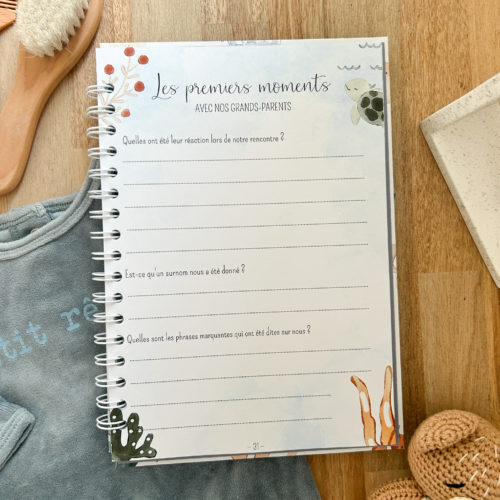 Les premiers moments
AVEC NOS GRANDS-PARENTS
Quelles ont été leur réaction lors de notre rencontre ?
Est-ce qu'un surnom nous a été donné ?
Quelles sont les phrases marquantes qui ont été dites sur nous ?
- 31 -
tit rê